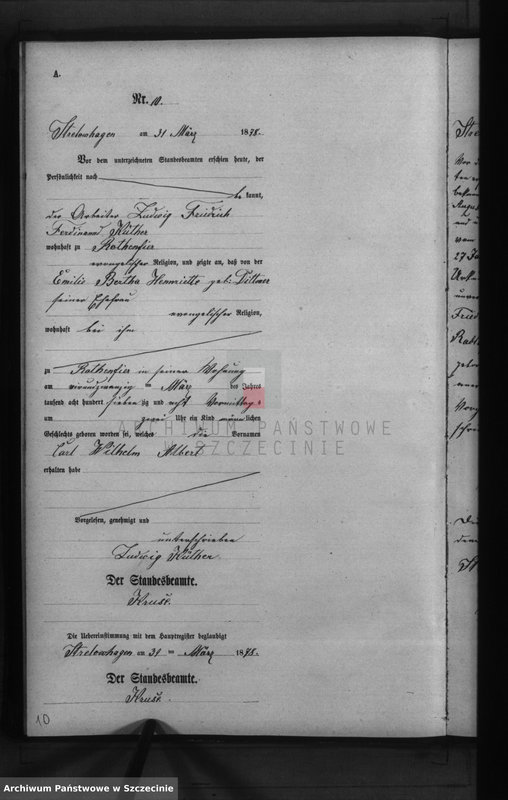 A.
Nr. 10.
Strelowhagen am 31 März 1878.
Vor dem unterzeichneten Standesbeamten erschien heute, der
Persönlichkeit nach
be kannt,
der Arbeiter Ludwig Friedrich
Ferdinand Küther
wohnhaft zu Rothenfier
evangelischer Religion, und zeigte an, daß von der
Emilie Bertha Henriette geb. Dittmer
seiner Ehefrau
evangelischer Religion,
wohnhaft bei ihm
zu Rothenfier in seiner Wohnung
am vierundzwanzig ten März des Jahres
tausend acht hundert sieben zig und acht Vormittags
um Uhr ein Kind männlichen
Geschlechts geboren worden sei, welches die Vornamen
Carl Wilhelm Albert
erhalten habe
Vorgelesen, genehmigt und
unterschrieben
Ludwig Küther
Der Standesbeamte.
Die Uebereinstimmung mit dem Hauptregister beglaubigt
Strelowhagen am 31 ten März 1878.
Der Standesbeamte.
10
ARCHIWUM PAŃSTWOWE
W SZCZECINIE
Archiwum Państwowe w Szczecinie